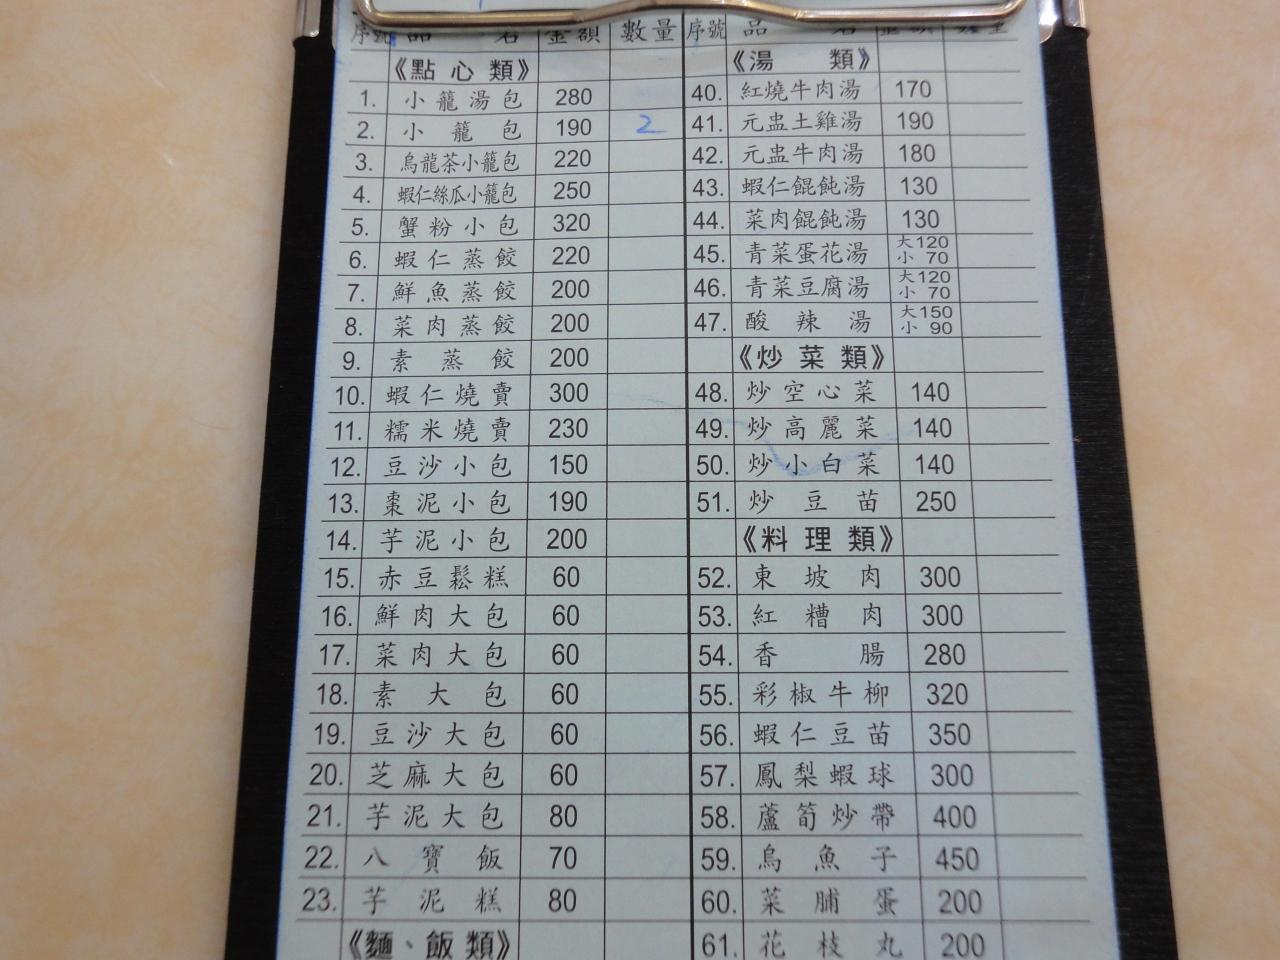 序號 品 名 金額 數量
《點心類》
1. 小籠湯包 280
2. 小籠包 190 2
3. 烏龍茶小籠包 220
4. 蝦仁絲瓜小籠包 250
5. 蟹粉小包 320
6. 蝦仁蒸餃 220
7. 鮮魚蒸餃 200
8. 菜肉蒸餃 200
9. 素蒸餃 200
10. 蝦仁燒賣 300
11. 糯米燒賣 230
12. 豆沙小包 150
13. 棗泥小包 190
14. 芋泥小包 200
15. 赤豆鬆糕 60
16. 鮮肉大包 60
17. 菜肉大包 60
18. 素大包 60
19. 豆沙大包 60
20. 芝麻大包 60
21. 芋泥大包 80
22. 八寶飯 70
23. 芋泥糕 80
《麵、飯類》
序號 品 名
《湯 類》
40. 紅燒牛肉湯 170
41. 元盅土雞湯 190
42. 元盅牛肉湯 180
43. 蝦仁餛飩湯 130
44. 菜肉餛飩湯 130
45. 青菜蛋花湯 大120
小 70
46. 青菜豆腐湯 大120
小 70
47. 酸辣湯 大150
小 90
《炒菜類》
48. 炒空心菜 140
49. 炒高麗菜 140
50. 炒小白菜 140
51. 炒豆苗 250
《料理類》
52. 東坡肉 300
53. 紅糟肉 300
54. 香腸 280
55. 彩椒牛柳 320
56. 蝦仁豆苗 350
57. 鳳梨蝦球 300
58. 蘆筍炒帶 400
59. 烏魚子 450
60. 菜脯蛋 200
61. 花枝丸 200